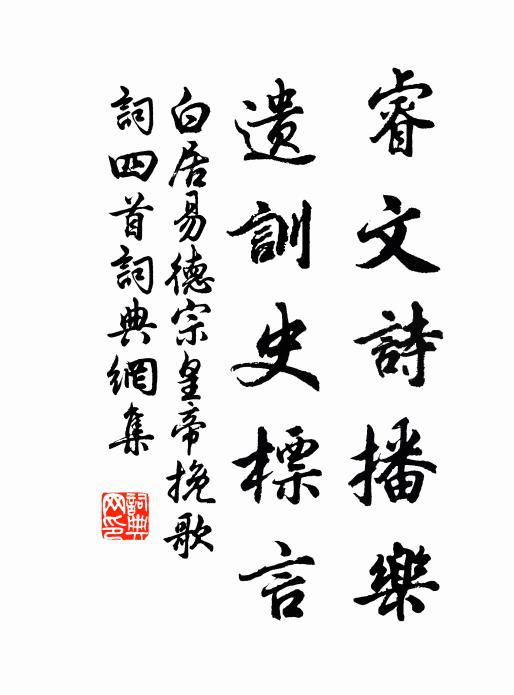 睿文詩播樂
遺訓史標言
白居易德宗皇帝挽歌
詞四首詞典網集
詞典網印